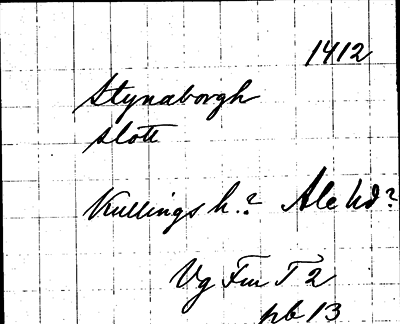 1412
Stynaborgh
slott
Kullings h.? Ale hd?
Vg Fm T 2
pb 13